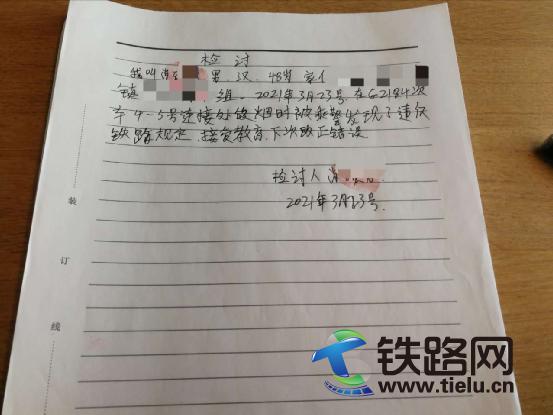 检讨
我叫 男.汉.48岁 家住
镇 组.2021年3月23号.在G2184次
车4-5号连接处吸烟时被乘警发现了违反
铁路规定.接受教育.下次改正错误
检讨人
2021年3月23号.
装
订
线
铁路网
www.tielu.cn